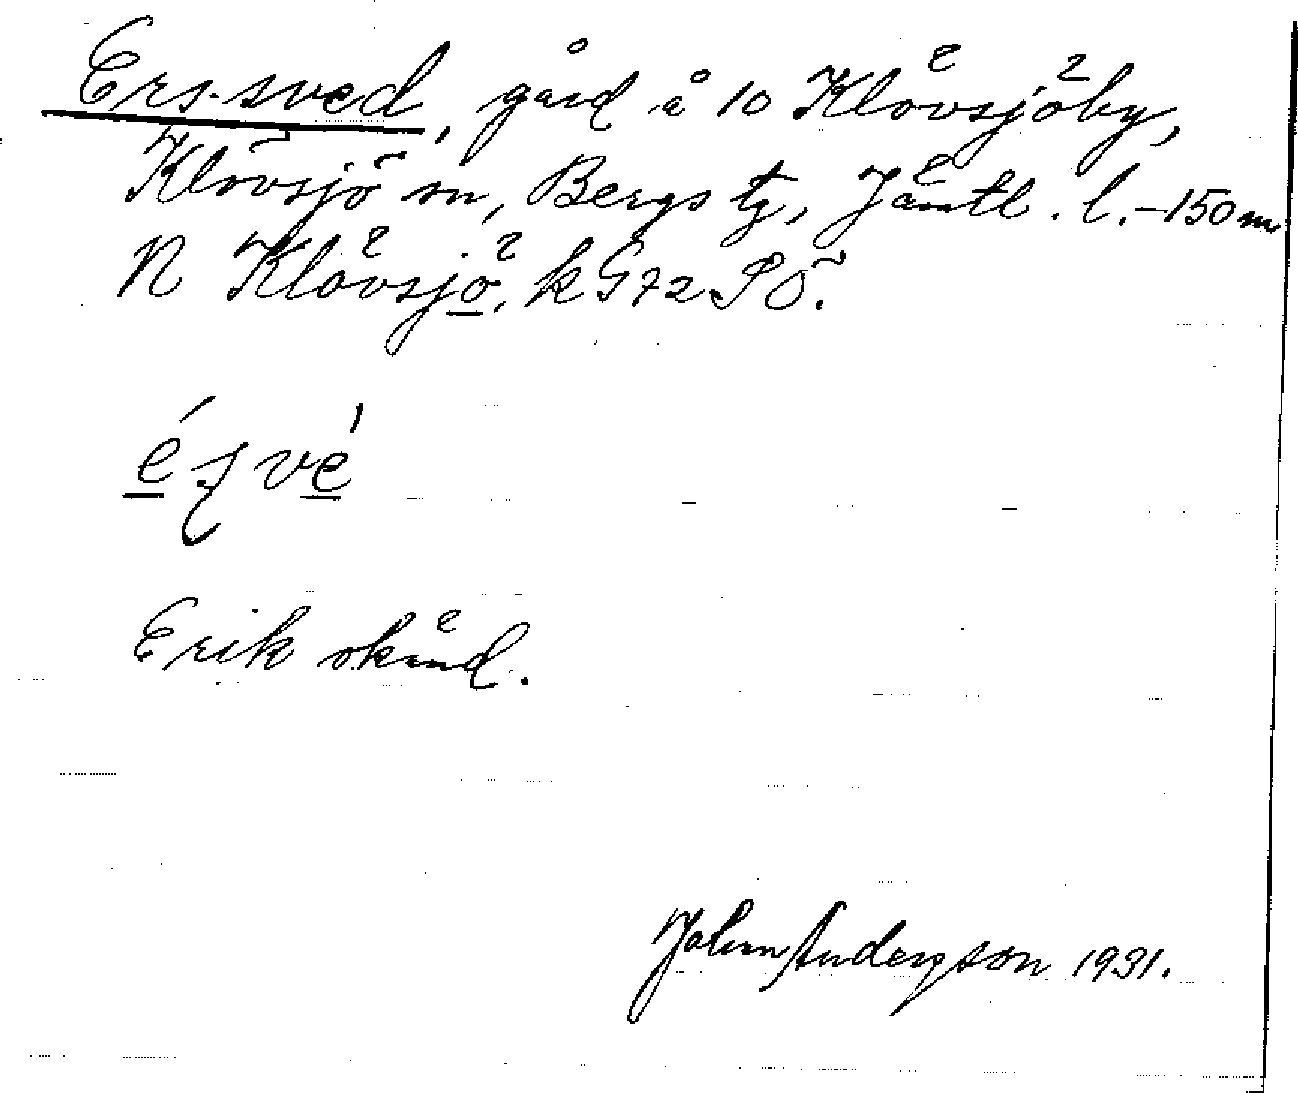 Ers-sved, gård å 10 Klövsjöby,
Klövsjö sn, Bergs tg, Jämtl. l. - 150 m
N Klövsjö, k G72 SÖ.
Erik okänd.
John Anderson 1931.